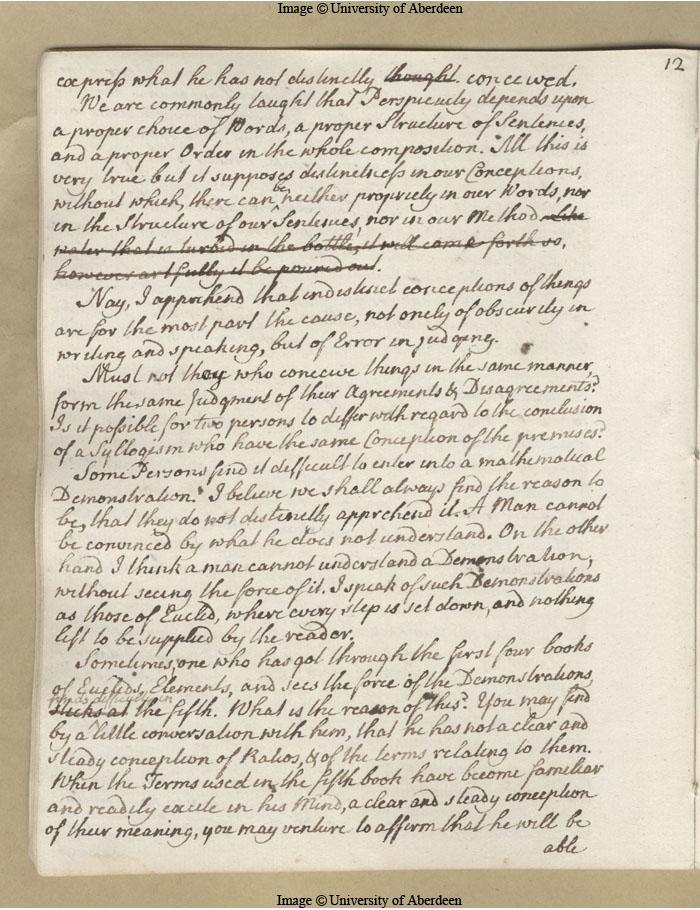 Image © University of Aberdeen
12
express what he has not distinctly thought conceived.
We are commonly taught that Perspicuity depends upon
a proper choice of Words, a proper Structure of Sentences,
and a proper Order in the whole composition. All this is
very true but it supposes distinctness in our Conceptions,
be
without which, there can neither propriety in our Words, nor
in the Structure of our Sentences, nor in our Method. Like
water that is turbid in the bottle, it will come forth so,
however artfully it be poured out.
Nay, I apprehend that indistinct conceptions of things
are for the most part the cause, not onely of obscurity in
writing and speaking, but of Error in judging.
Must not they who conceive things in the same manner,
form the same Judgment of their Agreements & Disagreements?
Is it possible for two persons to differ with regard to the conclusion
of a Syllogism who have the same Conception of the premises?
Some Persons find it difficult to enter into a mathematical
Demonstration. I believe we shall always find the reason to
be, that they do not distinctly apprehend it. A Man cannot
be convinced by what he does not understand. On the other
hand I think a man cannot understand a Demonstration,
without seeing the force of it. I speak of such Demonstrations
as those of Euclid, where every step is set down, and nothing
left to be supplied by the reader.
Sometimes, one who has got through the first four books
of Euclids, Elements, and sees the force of the Demonstrations,
finds difficulty in
sticks at the fifth. What is the reason of this? You may find
by a little conversation with him, that he has not a clear and
steady conception of Ratios, & of the terms relating to them.
When the Terms used in the fifth book have become familiar
and readily excite in his Mind, a clear and steady conception
of their meaning, you may venture to affirm that he will be
able
Image © University of Aberdeen